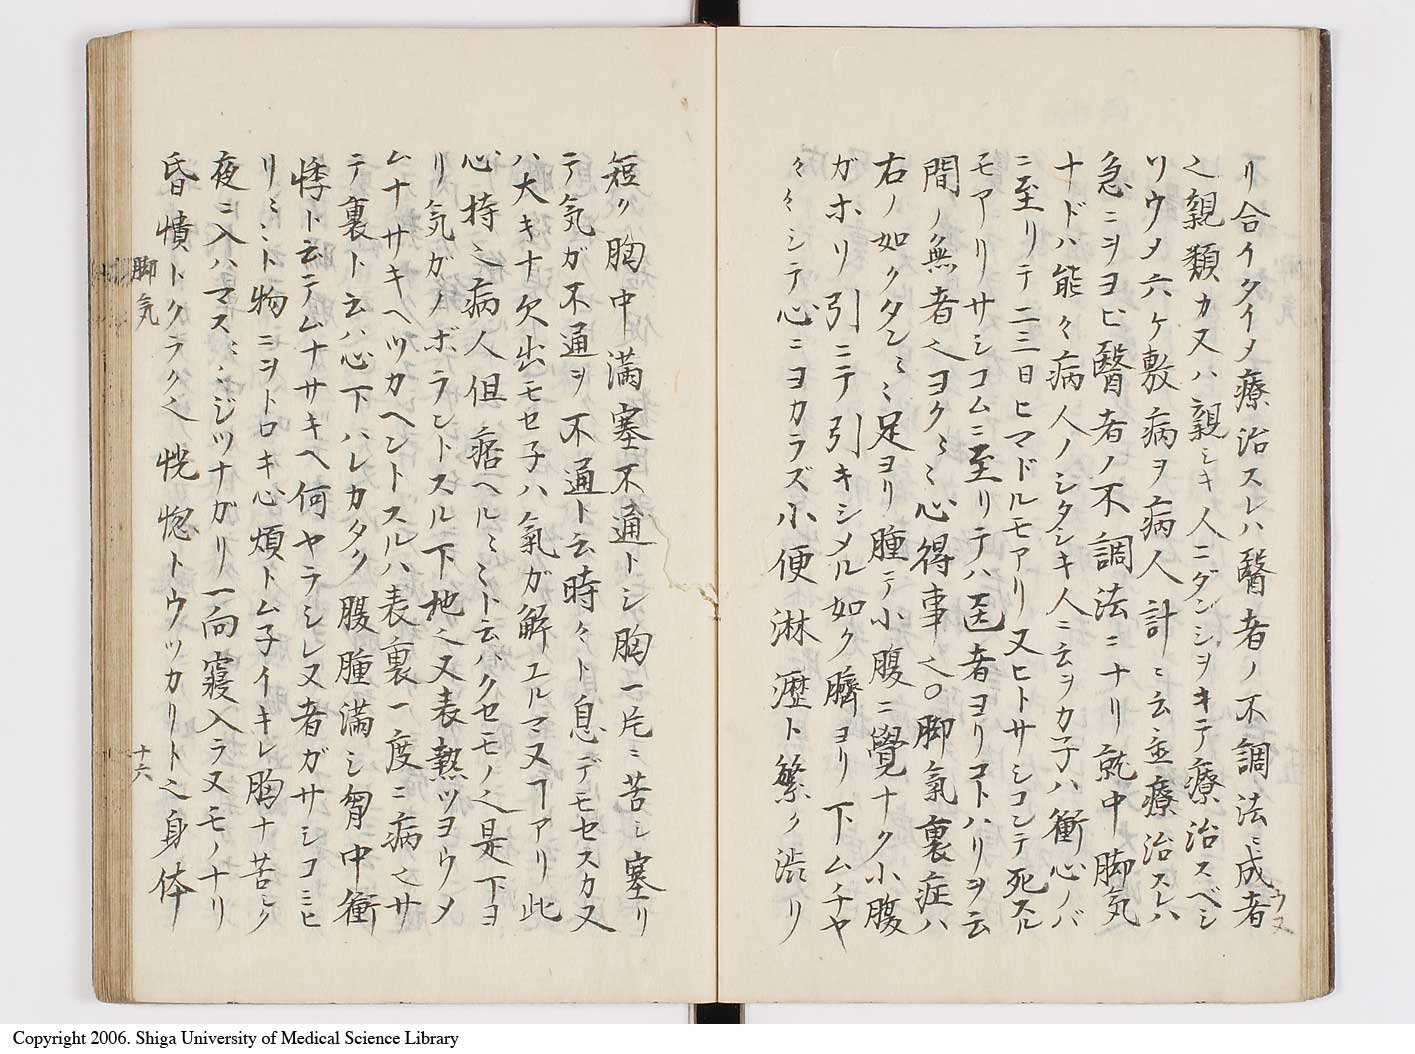 リ合イタイメ療治スレハ醫者ノ不調法ニ成者
之親類カ又ハ親シキ人ニダンシヲキテ療治スベシ
ソウメ六ケ敷病ヲ病人計ニ云並療治スレハ
急ニヲヨビ醫者ノ不調法ニナリ就中脚気
ナドハ能々病人ノシタシキ人ニ云ヲカ子ハ衝心ノバ
ニ至リテ二三日ヒマドルモアリ又ヒトサシコンテ死スル
モアリサシコムニ至リテハ医者ヨリコトハリヲ云
間ノ無者也ヨクミミ心得事也〇脚氣裏症ハ
右ノ如クタンミミ足ヨリ腫テ小腹ニ覺ナク小腹
ガホリ引ニテ引キシメル如ク臍ヨリ下ムチヤ
々々シテ心ニヨカラズ小便淋瀝ト繁ク渋リ
短ク胸中満塞不通トシ胸一片ニ苦シ塞リ
テ気ガ不通ヲ不通ト云時々ト息デモセスカ又
ハ大キナ欠出モセ子ハ氣ガ解ユルマヌヿアリ此
心持ニ病人但痞ヘルミミト云ハクセモノ也是下ヨ
リ気ガノボラントスル下地也又表熱ツヨウメ
ムナサキヘツカヘントスルハ表裏一度ニ病也サ
テ裏ト云ハ心下ハレカタク腹腫満シ胷中衝
悸ト云テムナサキヘ何ヤラシレヌ者ガサシコミヒ
リミミト物ニヲトロキ心煩トム子イキレ胸ナ苦シク
夜ニ入ハマスミミジツナガリ一向寝入ラヌモノナリ
昏憒トクラク也恍惚トウツカリト之身体
ウヌ
脚気
十六
Copyright 2006. Shiga University of Medical Science Library